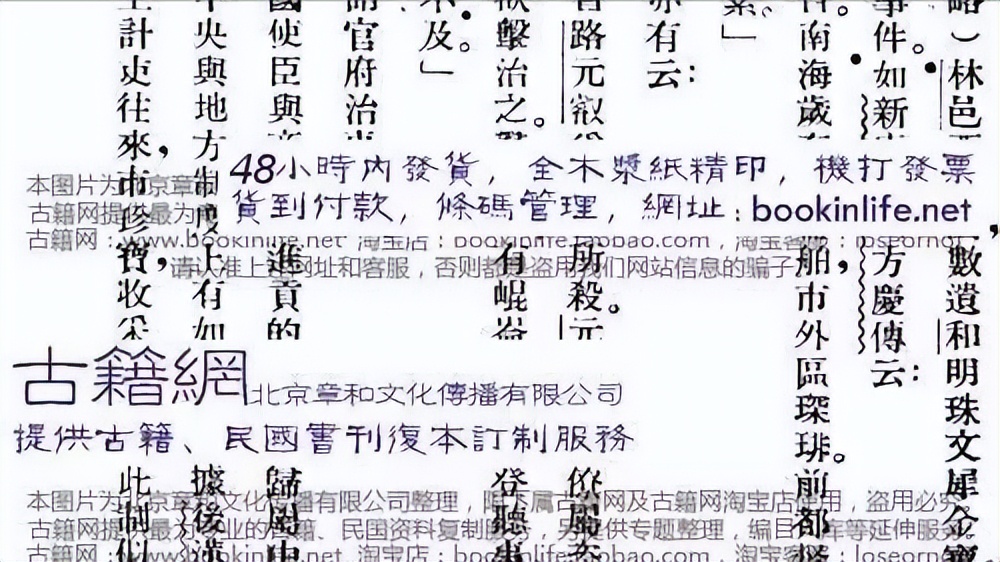 略）林邑
數遺和明珠文犀
事件。如新
方慶傳云：
南海歲
舶市外區琛琲。前都
亦有云：
路元叡
所殺。元
擊治之。
有崐崙
登聽事
不及。」
官府治
國使臣與
進貢的
中央與地方制度上有如
據後漢
計吏往來，市珍寶，收采
此制
48小時內發貨，全木漿紙精印，機打發票
貨到付款，條碼管理，網址：bookinlife.net
本图片为北京章
古籍网提供最为
古籍网：www.bookinlife.net 淘宝店：bookinlife.taobao.com，淘宝客服：loseornot
请认准上述网址和客服，否则都是盗用我们网站信息的骗子
古籍網 北京章和文化傳播有限公司
提供古籍、民國書刊復本訂制服務
本图片为北京章和文化传播有限公司整理，限本属古籍网及古籍网淘宝店使用，盗用必究
古籍网提供最为专业的古籍、民国资料复制服务，另提供专题整理，编目、建库等延伸服务。
古籍网：www.bookinlife.net 淘宝店：bookinlife.taobao.com，淘宝客服：loseornot